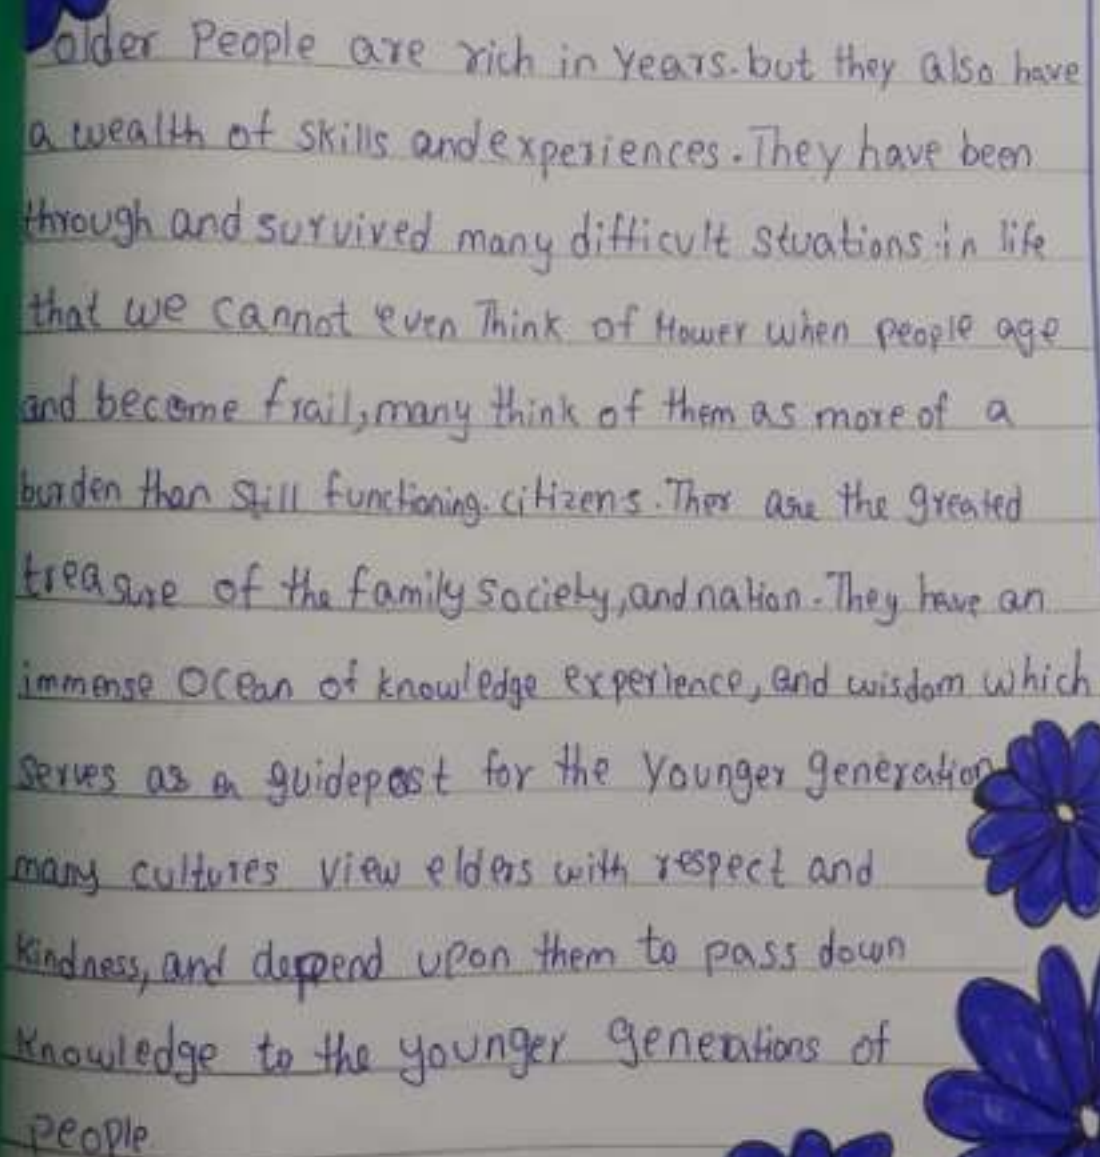 older People are rich in Years. but they also have
a wealth of skills and experiences. They have been
through and survived many difficult stuations in life
that we cannot even Think of Hower when people age
and become frail, many think of them as more of a
burden than still functioning. citizens. Ther are the greated
treasure of the family society, and nation. They have an
immense ocean of knowledge experience, and wisdom which
serves as a guidepost for the Younger generation
many cultures view elders with respect and
kindness, and depend upon them to pass down
knowledge to the younger generations of
people